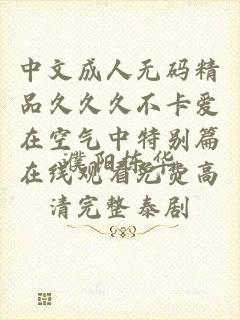 中文成人无码精
品久久久不卡爱
在空气中特别篇
在线观看免费高
濮阳栋华
清完整泰剧